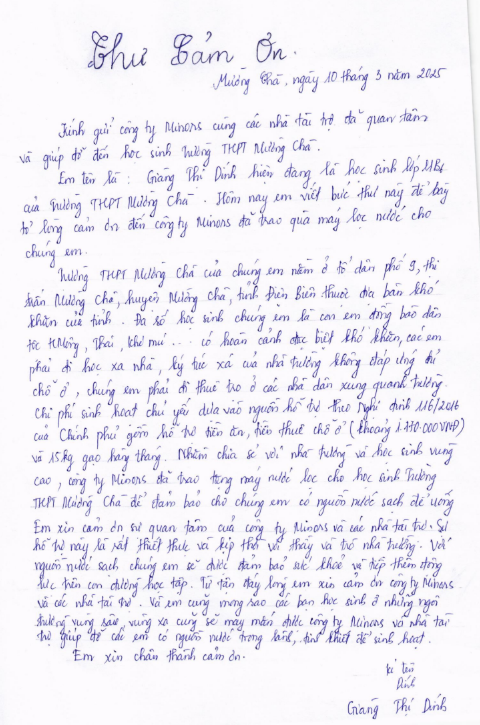 Thư Cảm Ơn.
Mường Chà, ngày 10 tháng 3 năm 2025
Kính gửi công ty Minors cùng các nhà tài trợ đã quan tâm
và giúp đỡ đến học sinh trường THPT Mường Chà.
Em tên là : Giàng Thị Dính hiện đang là học sinh lớp 11B4
của trường THPT Mường Chà. Hôm nay em viết bức thư này để bày
tỏ lòng cảm ơn đến công ty Minors đã trao quà máy lọc nước cho
chúng em.
Trường THPT Mường Chà của chúng em nằm ở tổ dân phố 9, thị
trấn Mường Chà, huyện Mường Chà, tỉnh Điện Biên thuộc địa bàn khó
khăn của tỉnh. Đa số học sinh chúng em là con em đồng bào dân
tộc H'Mông, Thái, Khơ mú... có hoàn cảnh đặc biệt khó khăn, các em
phải đi học xa nhà, ký túc xá của nhà trường không đáp ứng đủ
chỗ ở, chúng em phải đi thuê trọ ở các nhà dân xung quanh trường.
Chi phí sinh hoạt chủ yếu dựa vào nguồn hỗ trợ theo Nghị định 116/2016
của Chính phủ gồm hỗ trợ tiền ăn, tiền thuê chỗ ở (khoảng VNĐ)
và 15kg gạo hàng tháng. Nhằm chia sẻ với nhà trường và học sinh vùng
cao, công ty Minors đã trao tặng máy nước lọc cho học sinh trường
THPT Mường Chà để đảm bảo cho chúng em có nguồn nước sạch để uống
Em xin cảm ơn sự quan tâm của công ty Minors và các nhà tài trợ. Sự
hỗ trợ này là rất thiết thực và kịp thời với thầy và trò nhà trường. Với
nguồn nước sạch chúng em sẽ được đảm bảo sức khoẻ và tiếp thêm động
lực trên con đường học tập. Từ tận đáy lòng em xin cảm ơn công ty Minors
và các nhà tài trợ. Và em cũng mong sao các bạn học sinh ở những ngôi
trường vùng sâu, vùng xa cũng sẽ may mắn được công ty Minors và nhà tài
trợ giúp đỡ các em có nguồn nước trong lành, tinh khiết để sinh hoạt.
Em xin chân thành cảm ơn.
kí tên
Dính
Giàng Thị Dính